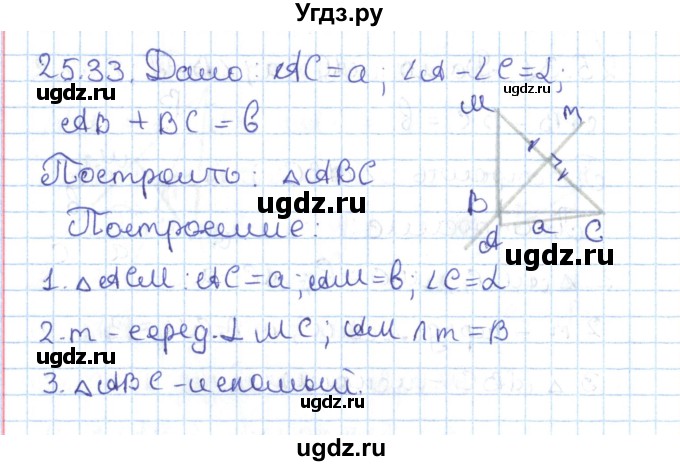 Угдз.ру
25.33. Дано: AC = a; ∠A - ∠C = α;
AB + BC = b
Построить: △ABC
Построение:
1. △ACM: AC = a; AM = b; ∠C = α
2. m - серед. ⊥ MC; AM ∩ m = B
3. △ABC - искомый.
M
m
B
A
a
C
ugdz.ru
ugdz.ru
ugdz.ru
ugdz.ru
ugdz.ru
ugdz.ru
ugdz.ru
ugdz.ru
ugdz.ru